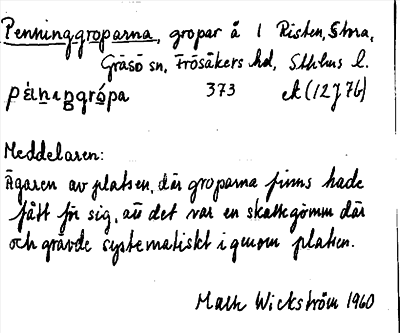 Penninggroparna, gropar å 1 Risten, Stora,
Gräsö sn, Frösåkers hd, Sthlms l.
373 ek (12J7b)
Meddelaren:
Ägaren av platsen, där groparna finns hade
fått för sig, att det var en skattgömma där
och grävde systematiskt igenom platsen.
Mats Wickström 1960